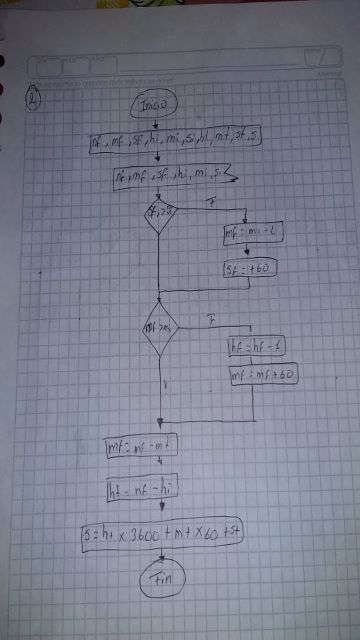 2
Inicio
hf, mf, sf, hi, mi, si, ht, mt, st, s
hf, mf, sf, hi, mi, si
F
mf = mi - 1
sf = +60
mf > mi
F
hf = hf - 1
mf = mf + 60
mt = mf - mt
ht = hf - hi
s = ht x 3600 + mt x 60 + st
Fin